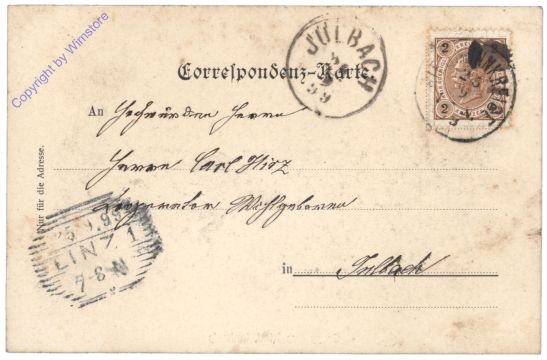 Copyright by Wimstore
Correspondenz-Karte.
JULBACH
99
2 2
2 2
An Hochwürden Herrn
Herrn Carl Hirz
Cooperator Wohlgeboren
in Julbach
Nur für die Adresse.
25.9.99
LINZ 1
7-8 N